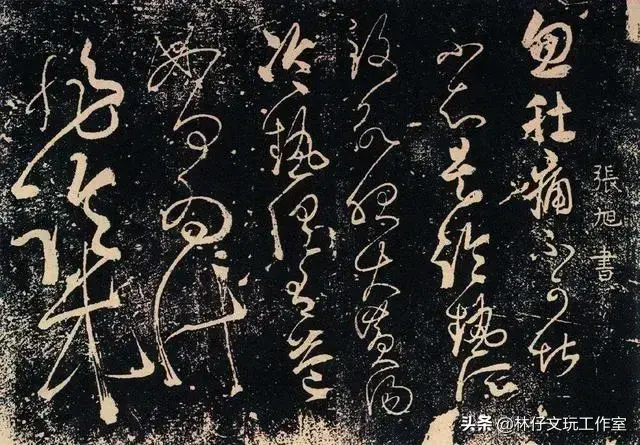 張旭書
忽肚痛不可堪
不知是冷熱所
致欲服大黃湯
冷熱俱有益
如何為計
非臨床
头条 @林仔文玩工作室